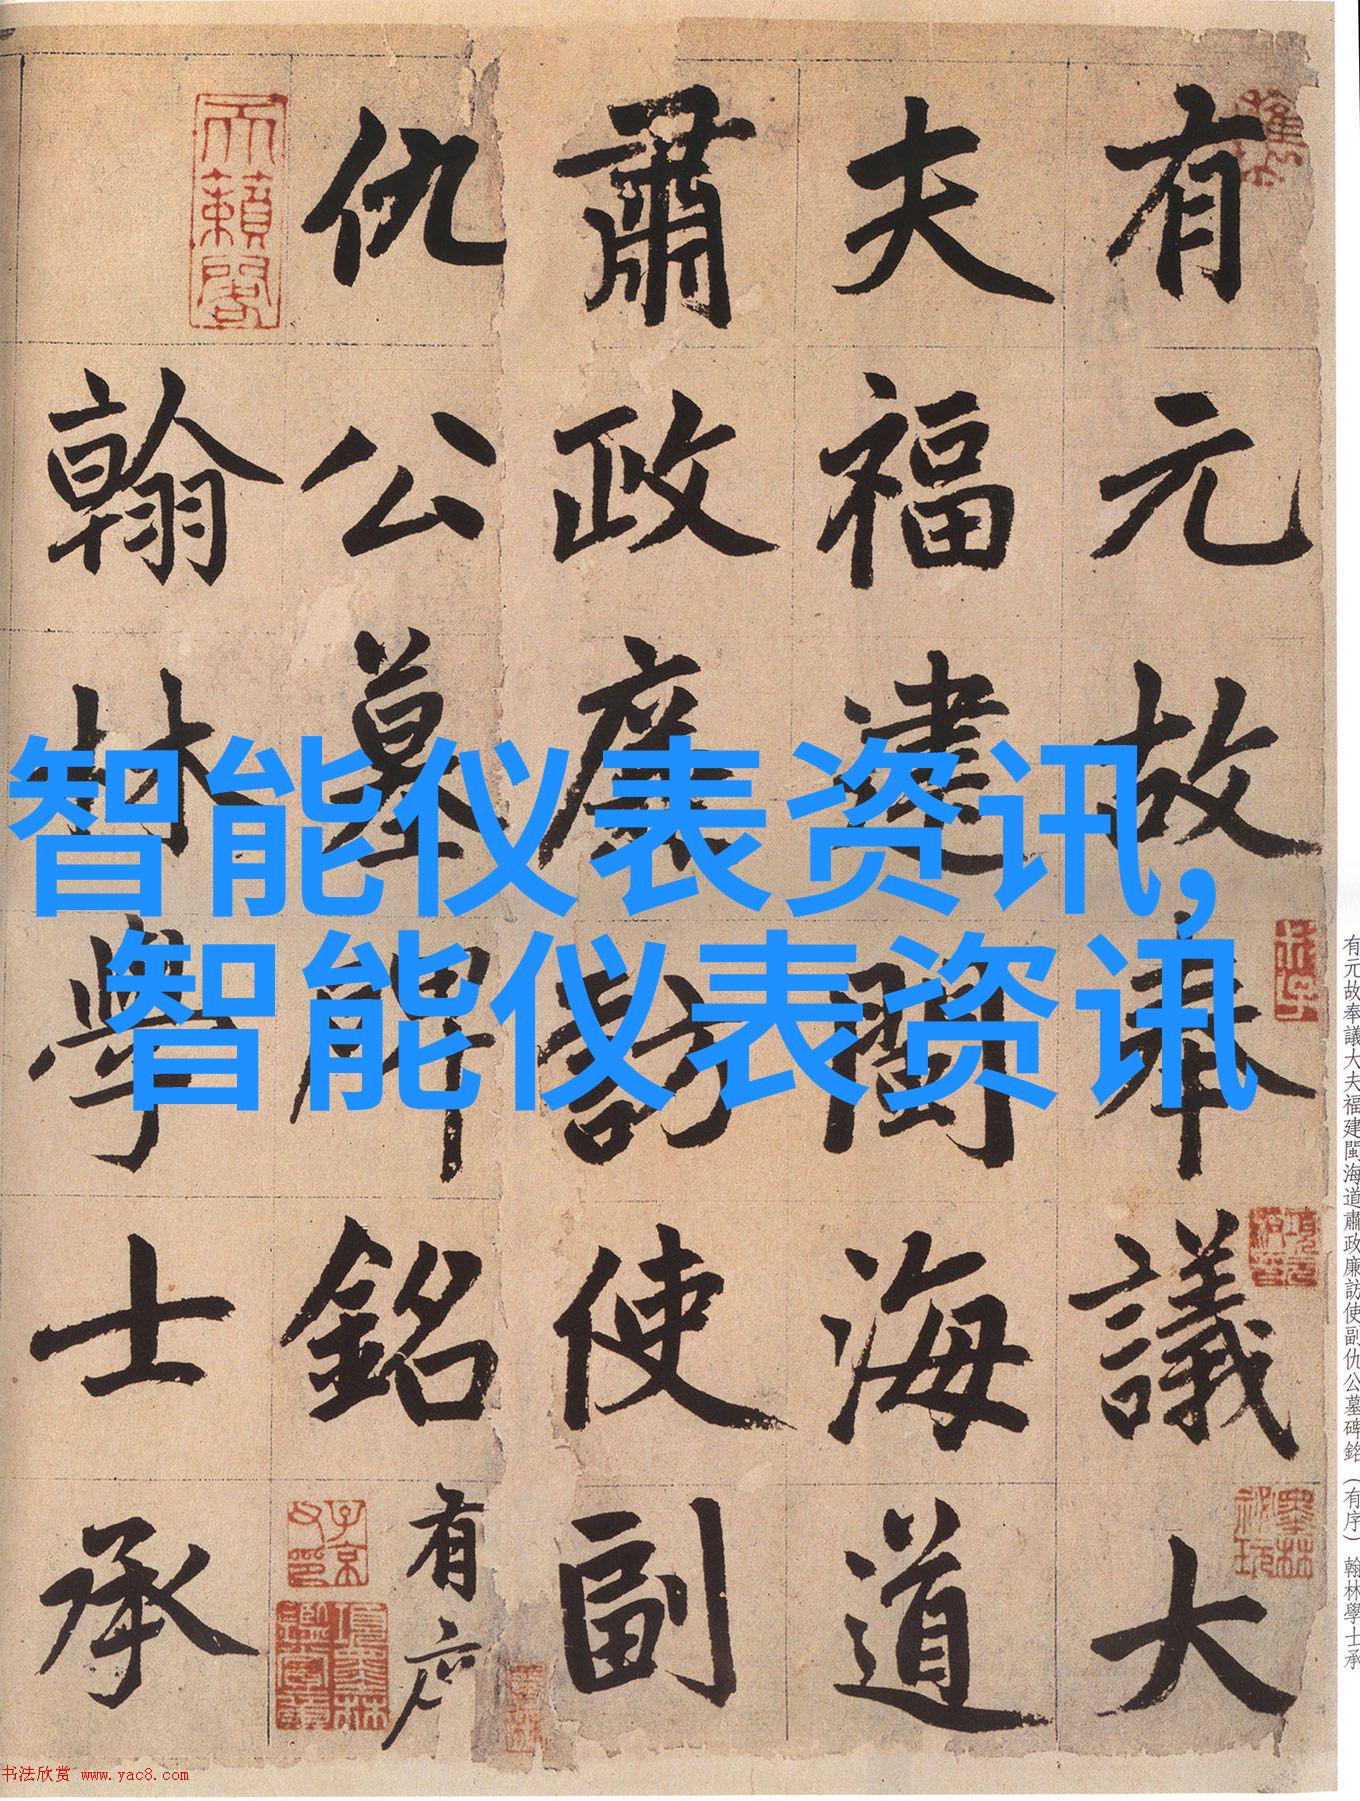 有元故奉議大
夫福建閩海道
肅政廉訪使副
仇公墓碑銘有序
翰林學士承
智能仪表资讯,
智能仪表资讯
天籟閣
子京父印
有元故奉議大夫福建閩海道肅政廉訪使副仇公墓碑銘（有序）翰林學士承
书法欣赏 www.yac8.com